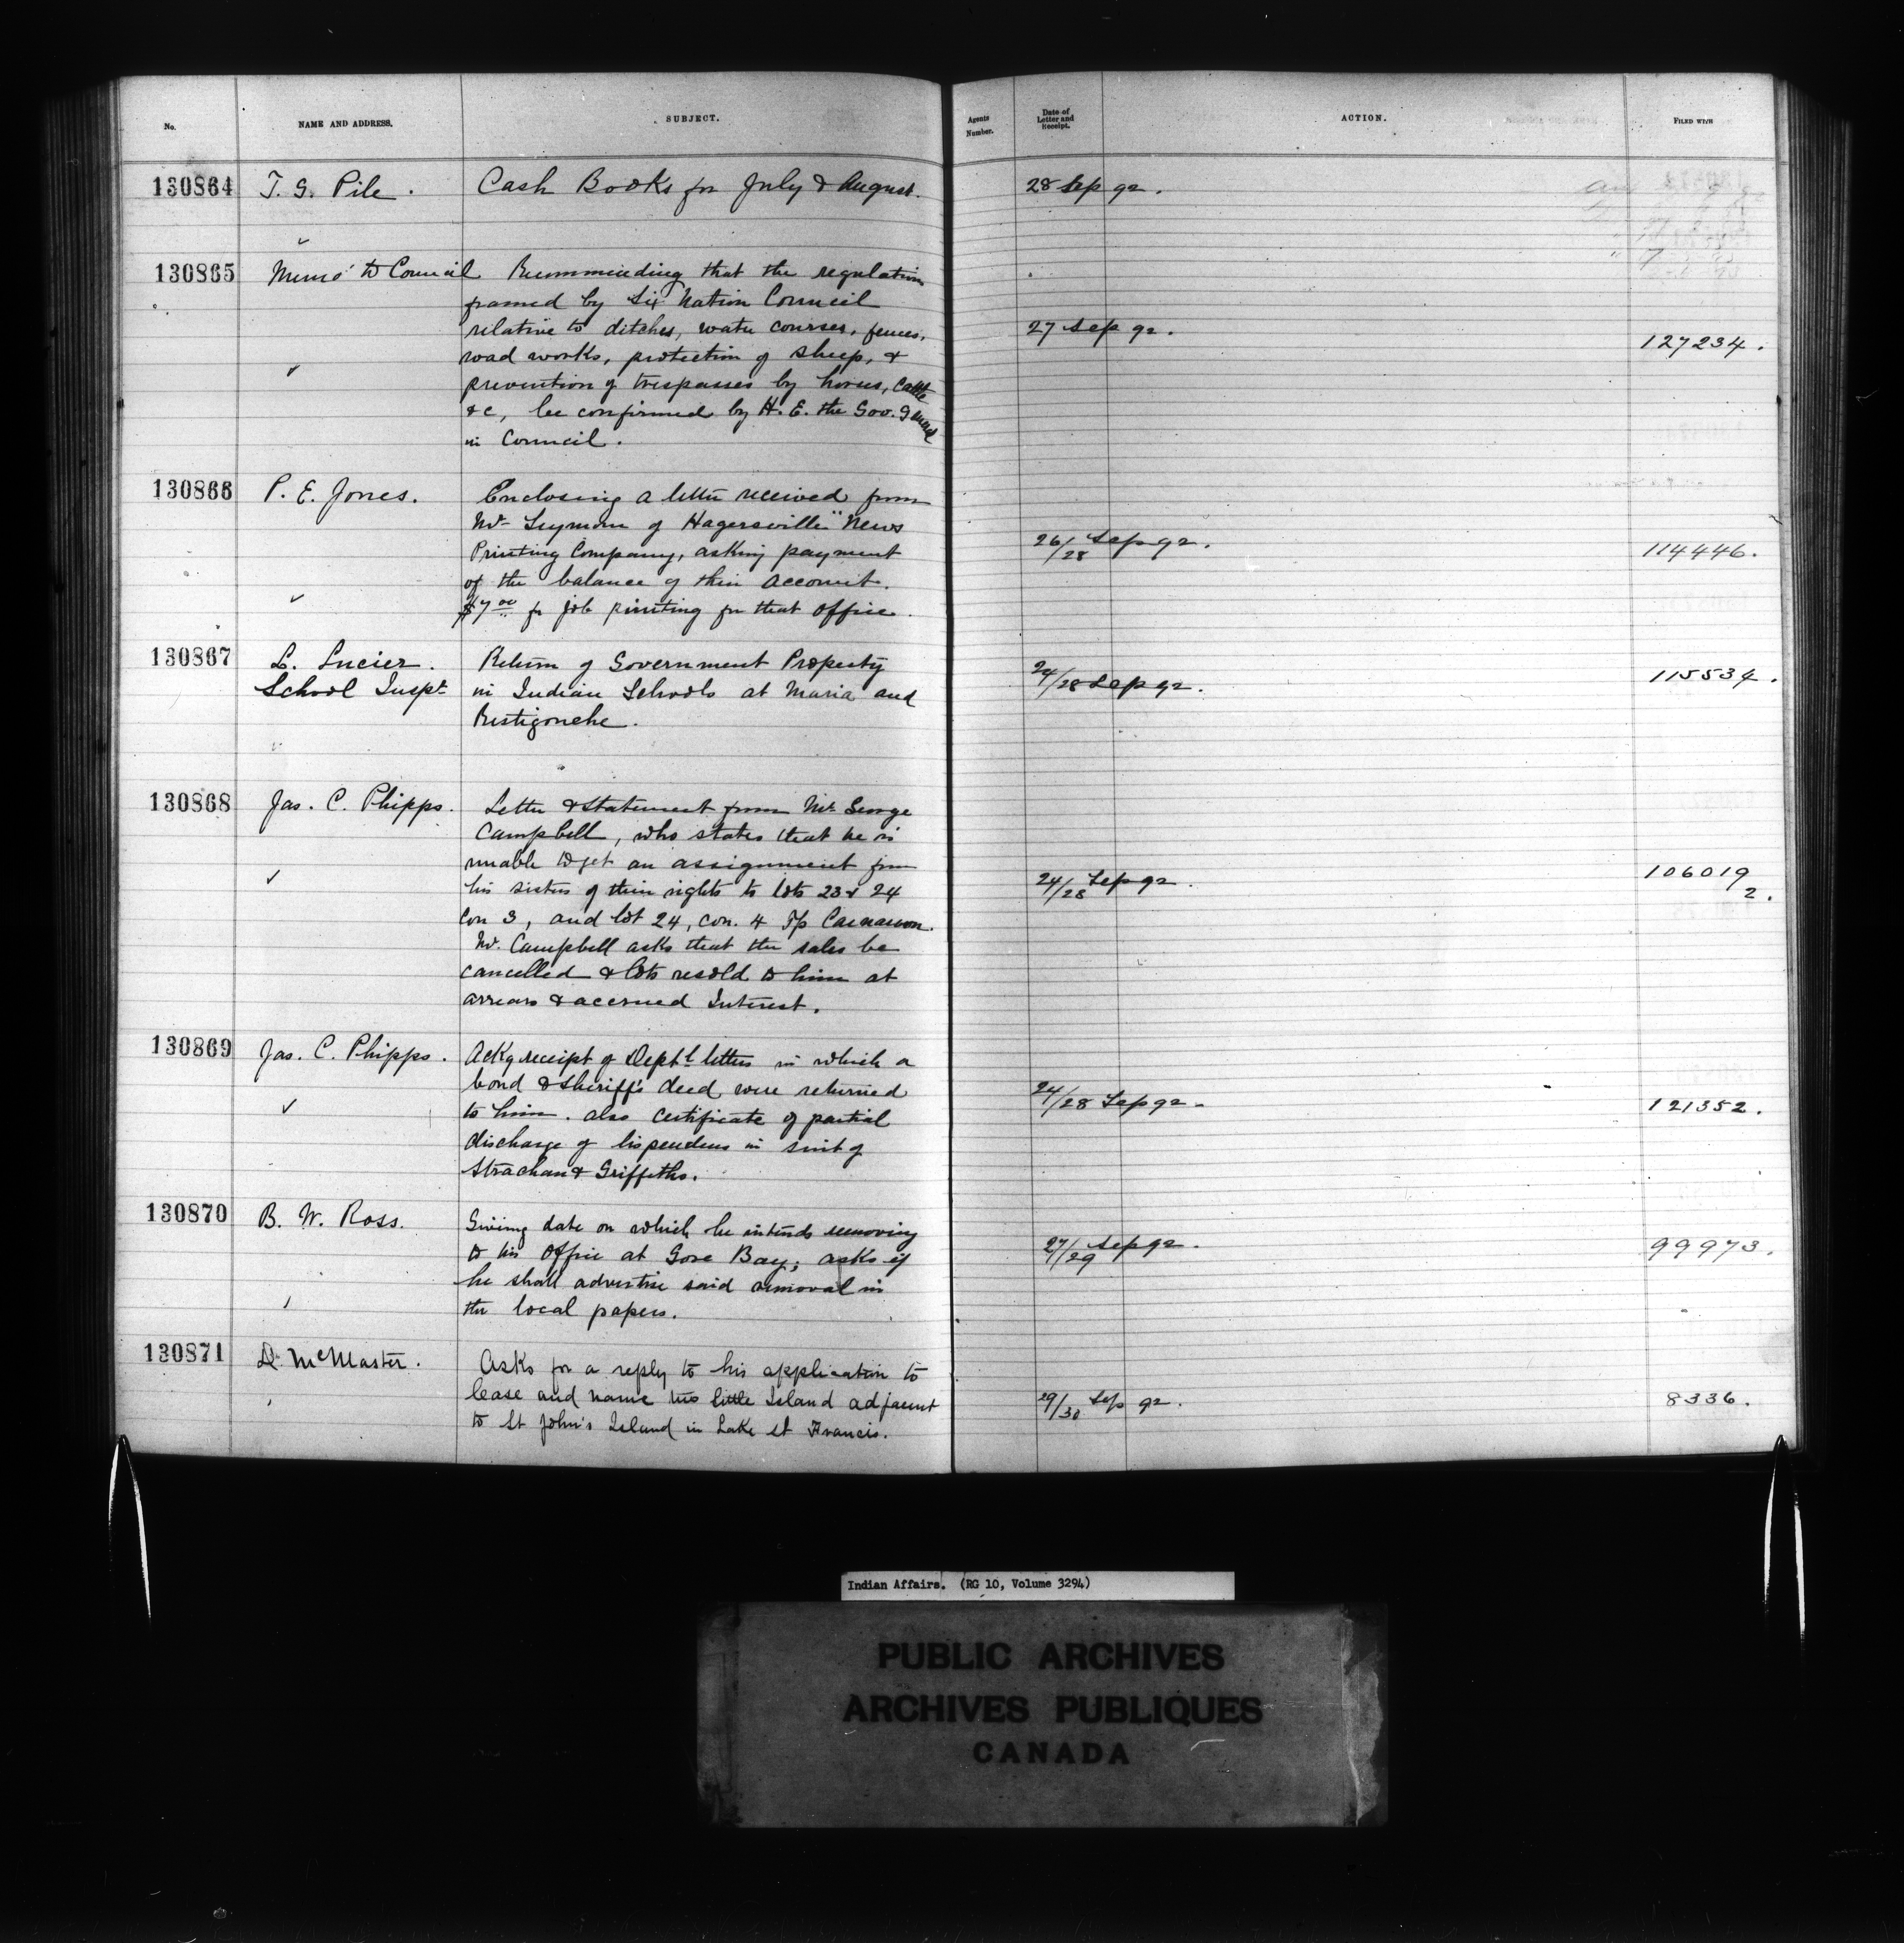 No. NAME AND ADDRESS. SUBJECT. Agents Number. Date of Letter and Receipt. ACTION. FILED WITH
130864 T. G. Pile. Cash Books for July & August. 28 Sep 92.
130865 Memo to Council Recommending that the regulations
framed by Six Nation Council
relative to ditches, water courses, fences, 27 Sep 92. 127234.
road works, protection of sheep, &
prevention of trespasses by horses, cattle
&c, be confirmed by H. E. the Gov. General
in Council.
130866 P. E. Jones. Enclosing a letter received from
Mr Seymour of Hagersville "News
Printing Company, asking payment 26/28 Sep 92. 114446.
of the balance of their account.
$7 00 for job printing for that office.
130867 L. Lucier. Return of Government Property
School Inspt in Indian Schools at Maria and 24/28 Sep 92. 115534.
Restigouche.
130868 Jas. C. Phipps. Letter & Statement from Mr George
Campbell, who states that he is
unable to get an assignment from
his sisters of their rights to lots 23 & 24 24/28 Sep 92. 106019 2.
Con 3, and lot 24, con. 4 Tp Carnarvon.
Mr. Campbell asks that the sales be
cancelled & lots resold to him at
arrears & accrued Interest.
130869 Jas. C. Phipps. Ackg receipt of Deptl letters in which a
bond & Sheriff's deed were returned
to him. also certificate of partial 24/28 Sep 92. 121352.
discharge of lis pendens in suit of
Strachan & Griffiths.
130870 B. W. Ross. Giving date on which he intends removing
to his Office at Gore Bay; asks if 27/29 Sep 92. 99973.
he shall advertise said removal in
the local papers.
130871 D. McMaster. Asks for a reply to his application to
lease and name two little Island adjacent 29/30 Sep 92. 8336.
to St John's Island in Lake St Francis.
Indian Affairs. (RG 10, Volume 3294)
PUBLIC ARCHIVES
ARCHIVES PUBLIQUES
CANADA